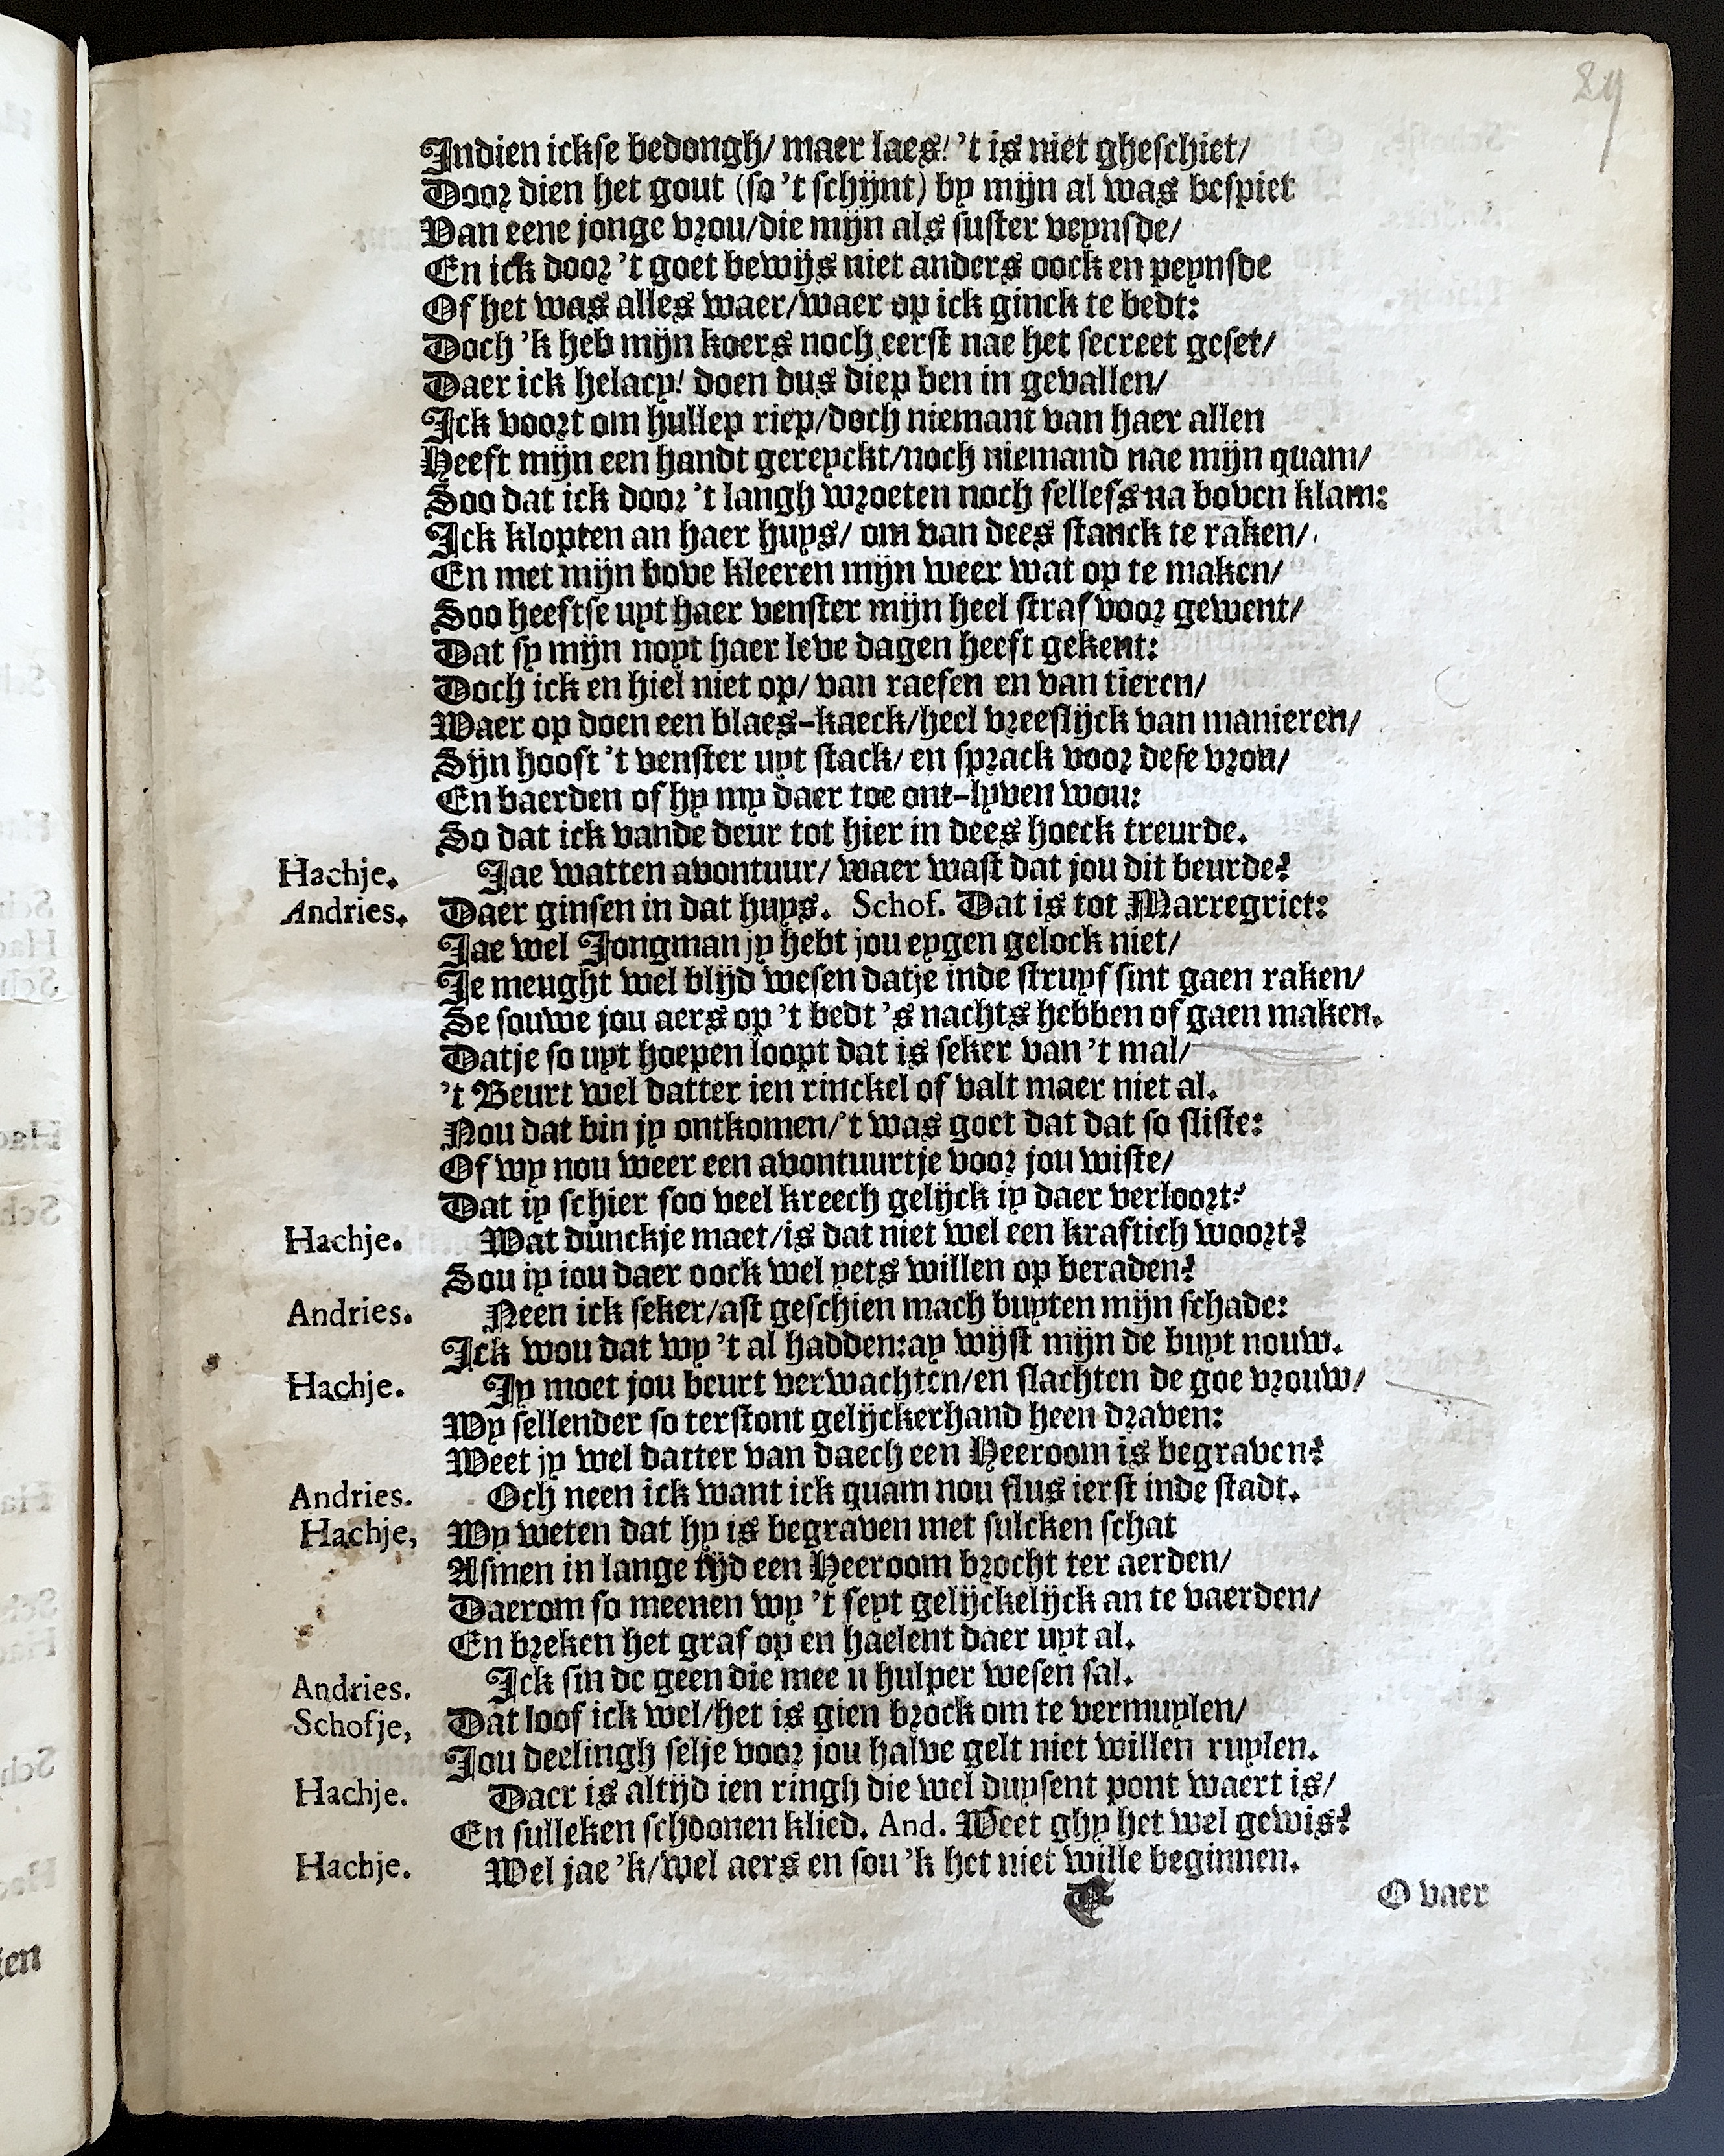 29
Indien ickse bedongh/ maer laes! 't is niet gheschiet/
Door dien het gout (so 't schijnt) by mijn al was bespiet
Van eene jonge vrou/die mijn als suster veynsde/
En ick door 't goet bewijs niet anders oock en peynsde
Of het was alles waer/waer op ick ginck te bedt:
Doch 'k heb mijn koers noch eerst nae het secreet geset/
Daer ick helacy! doen dus diep ben in gevallen/
Ick voort om hullep riep/doch niemant van haer allen
Heeft mijn een handt gereyckt/noch niemand nae mijn quam/
Soo dat ick door 't langh wroeten noch sellefs na boven klam:
Ick klopten an haer huys/ om van dees stanck te raken/
En met mijn bove kleeren mijn weer wat op te maken/
Soo heeftse uyt haer venster mijn heel straf voor gewent/
Dat sy mijn noyt haer leve dagen heeft gekent:
Doch ick en hiel niet op/ van raesen en van tieren/
Waer op doen een blaes-kaeck/heel vreeslijck van manieren/
Sijn hooft 't venster uyt stack/ en sprack voor dese vrou/
En baerden of hy my daer toe ont-lyven wou:
So dat ick vande deur tot hier in dees hoeck treurde.
Hachje. Jae watten avontuur/ waer wast dat jou dit beurde?
Andries. Daer ginsen in dat huys. Schof. Dat is tot Marregriet:
Jae wel Jongman jy hebt jou eygen gelock niet/
Je meught wel blijd wesen datje inde struyf sint gaen raken/
Se souwe jou aers op 't bedt 's nachts hebben of gaen maken.
Datje so uyt hoepen loopt dat is seker van 't mal/
't Beurt wel datter ien rinckel of valt maer niet al.
Nou dat bin jy ontkomen/'t was goet dat dat so sliste:
Of wy nou weer een avontuurtje voor jou wiste/
Dat iy schier soo veel kreech gelijck iy daer verloort?
Hachje. Wat dunckje maet/is dat niet wel een kraftich woort?
Sou iy iou daer oock wel yets willen op beraden?
Andries. Neen ick seker/ast geschien mach buyten mijn schade:
Ick wou dat wy 't al hadden:ay wijst mijn de buyt nouw.
Hachje. Jy moet jou beurt verwachten/en slachten de goe vrouw/
Wy sellender so terstont gelijckerhand heen draven:
Weet jy wel datter van daech een Heeroom is begraven?
Andries. Och neen ick want ick quam nou flus ierst inde stadt.
Hachje, Wy weten dat hy is begraven met sulcken schat
Asmen in lange tijd een Heeroom brocht ter aerden/
Daerom so meenen wy 't seyt gelijckelijck an te vaerden/
En breken het graf op en haelent daer uyt al.
Andries. Ick sin de geen die mee u hulper wesen sal.
Schofje, Dat loof ick wel/het is gien brock om te vermuylen/
Jou deelingh selje voor jou halve gelt niet willen ruylen.
Hachje. Daer is altijd ien ringh die wel duysent pont waert is/
En sulleken schoonen klied. And. Weet ghy het wel gewis?
Hachje. Wel jae 'k/wel aers en sou 'k het niet wille beginnen.
E O vaer